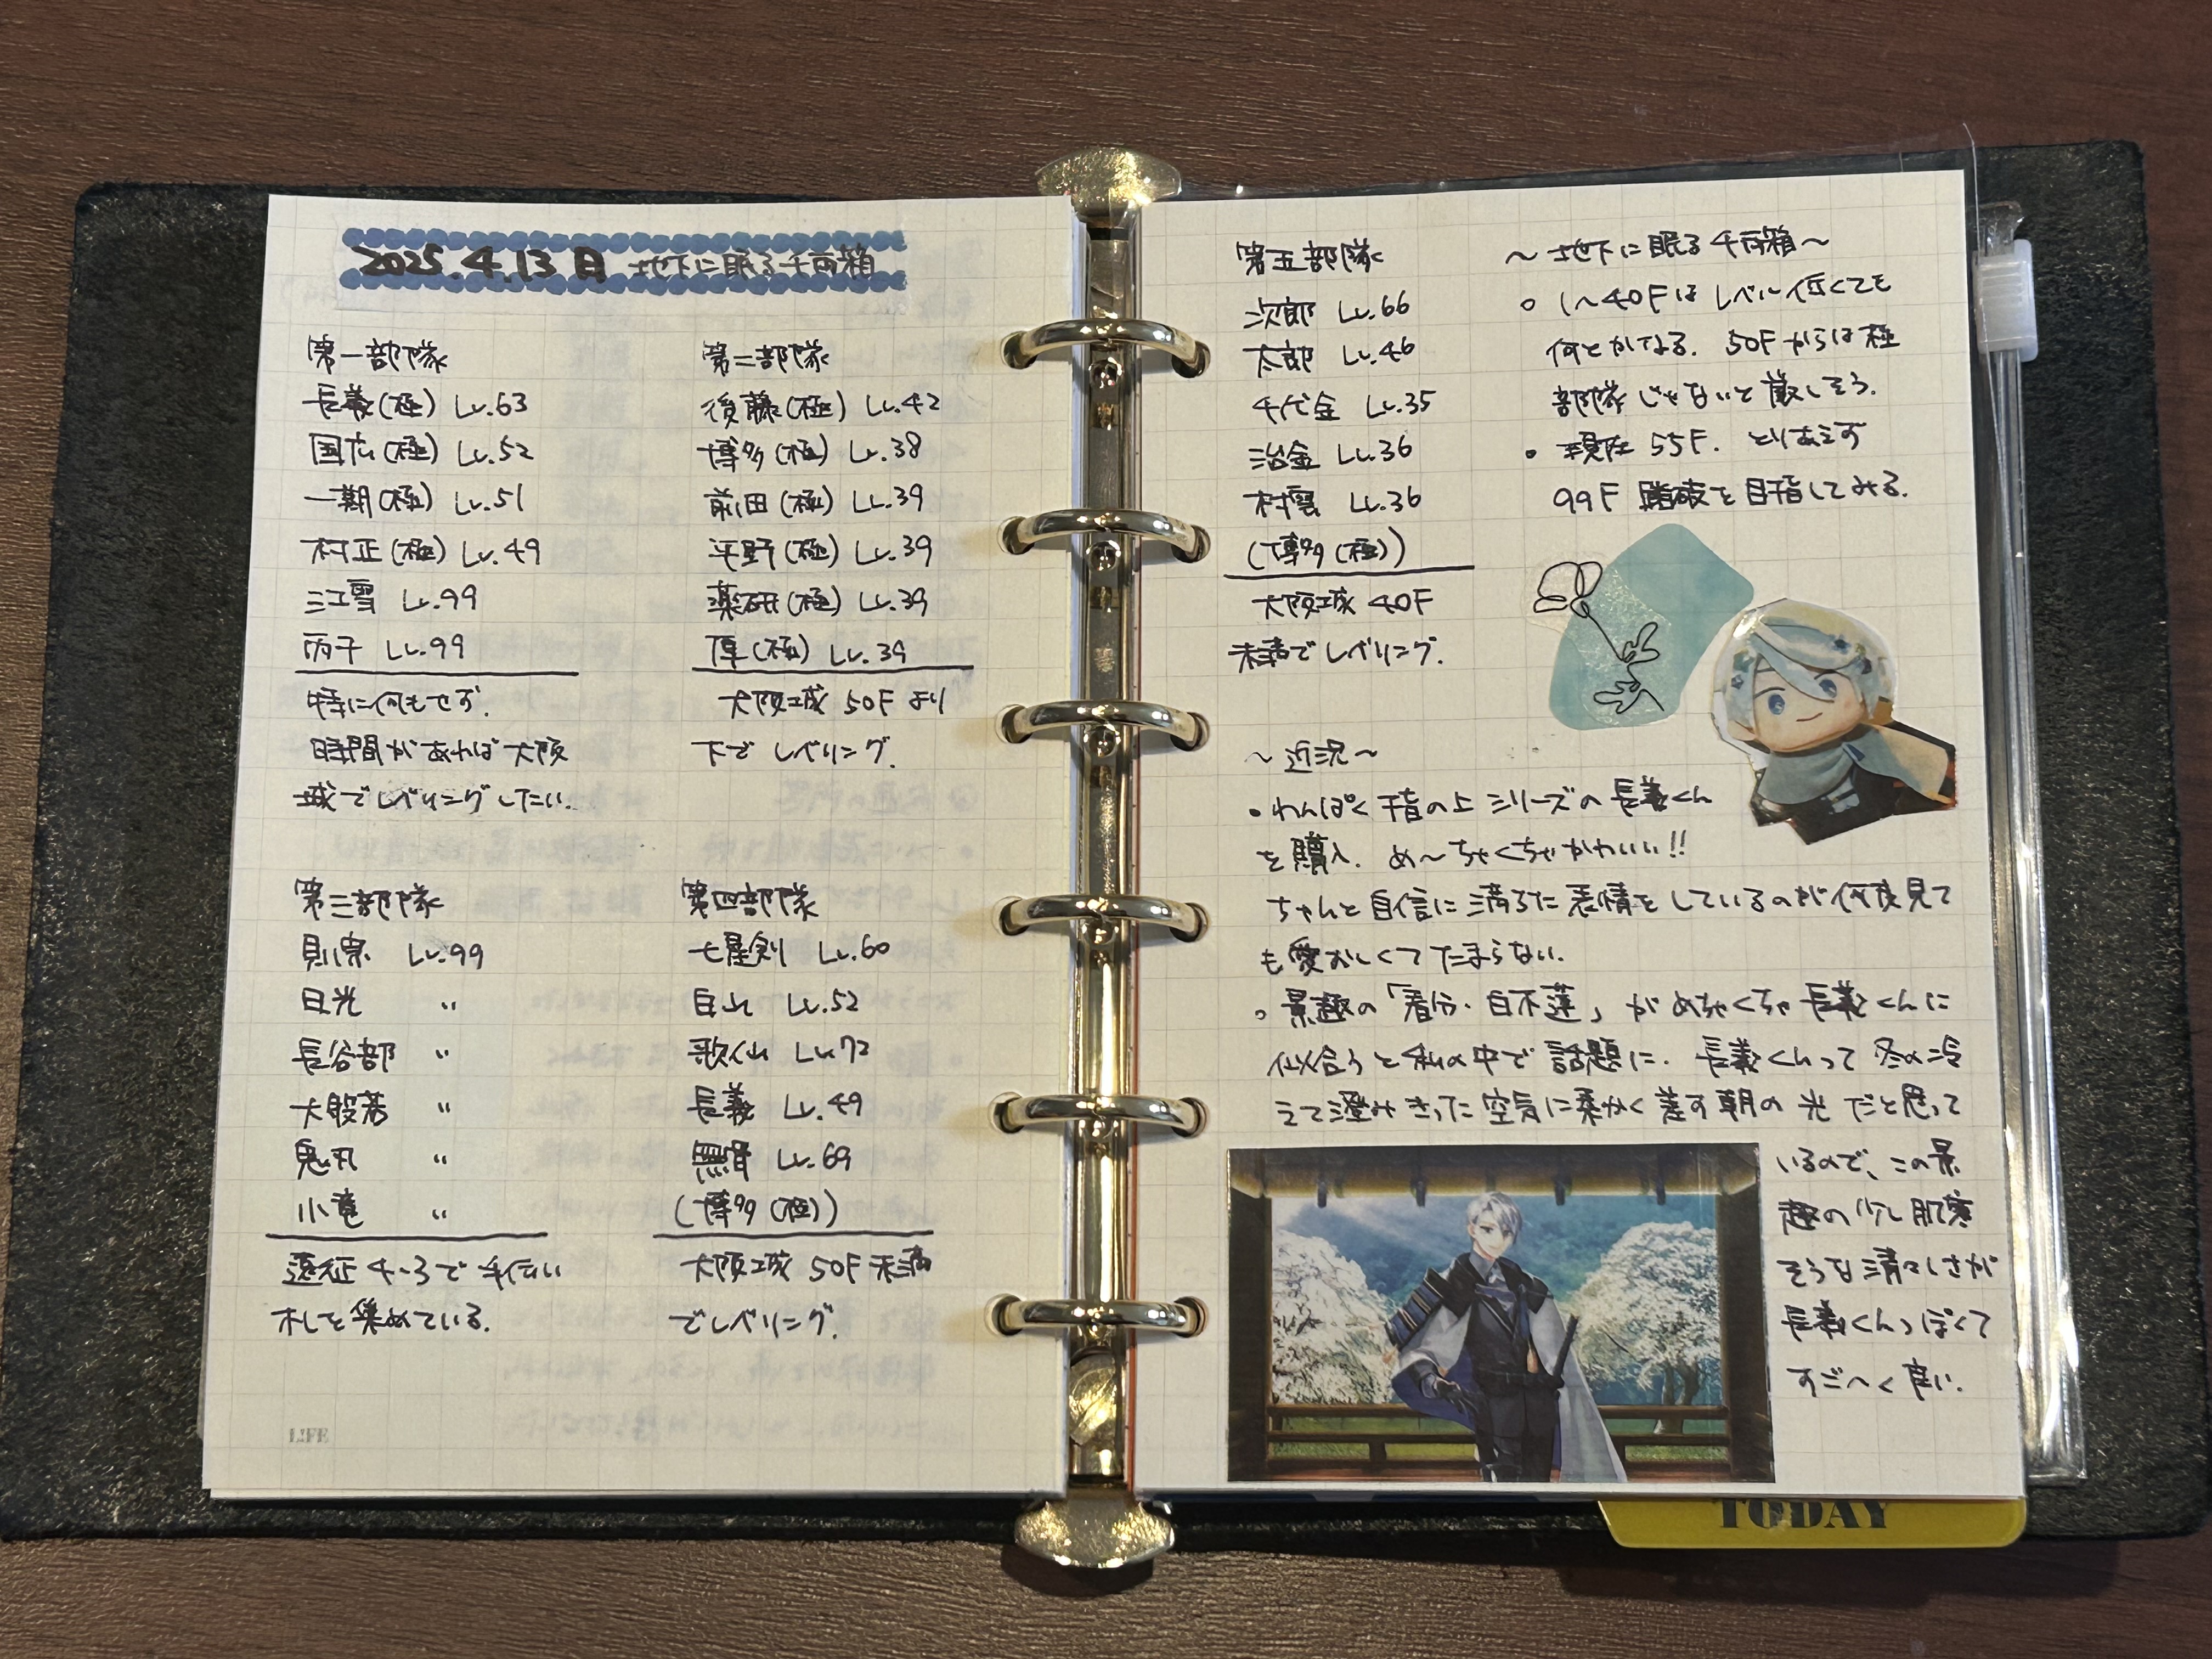 2025.4.13 日 地下に眠る千両箱
第一部隊
長義(極) Lv.63
国広(極) Lv.52
一期(極) Lv.51
村正(極) Lv.49
江雪 Lv.99
丙子 Lv.99
特に何もせず.
時間があれば大阪
城でレベリングしたい.
第二部隊
後藤(極) Lv.42
博多(極) Lv.38
前田(極) Lv.39
平野(極) Lv.39
薬研(極) Lv.39
厚(極) Lv.39
大阪城 50Fより
下でレベリング.
第三部隊
則宗 Lv.99
日光 〃
長谷部 〃
大般若 〃
鬼丸 〃
小竜 〃
遠征 4-3で手伝い
札を集めている.
第四部隊
七星剣 Lv.60
白山 Lv.52
歌仙 Lv.72
長義 Lv.49
無骨 Lv.69
(博多(極))
大阪城 50F未満
でレベリング.
LIFE
第五部隊
次郎 Lv.66
太郎 Lv.46
千代金 Lv.35
治金 Lv.36
村雲 Lv.36
(博多(極))
大阪城 40F
未満でレベリング.
〜地下に眠る千両箱〜
。1〜40Fはレベル低くても
何とかなる. 50Fからは極
部隊じゃないと厳しそう.
・現在 55F. とりあえず
99F 踏破を目指してみる.
〜近況〜
・わんぱく 手指の上シリーズの長義くん
を購入. め〜ちゃくちゃかわいい!!
ちゃんと自信に満ちた表情をしているのが何度見て
も愛おしくてたまらない.
。景趣の「春分・白木蓮」がめちゃくちゃ長義くんに
似合うと私の中で話題に. 長義くんって冬の冷
えて澄みきった空気に柔かく差す朝の光だと思って
いるので、この景
趣の少し肌寒
そうな清々しさが
長義くんっぽくて
すご〜く良い.
TODAY